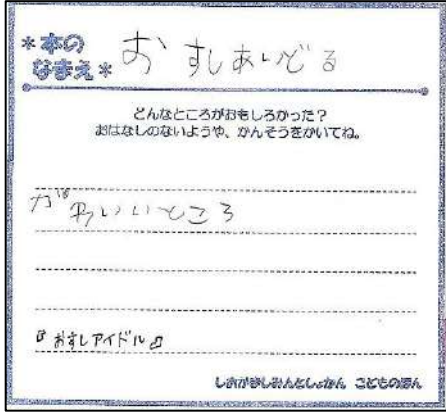 *本の
なまえ* おすしあいどる
どんなところがおもしろかった?
おはなしのないようや、かんそうをかいてね。
かわいいところ
『おすしアイドル』
しおがましみんとしょかん こどものほん